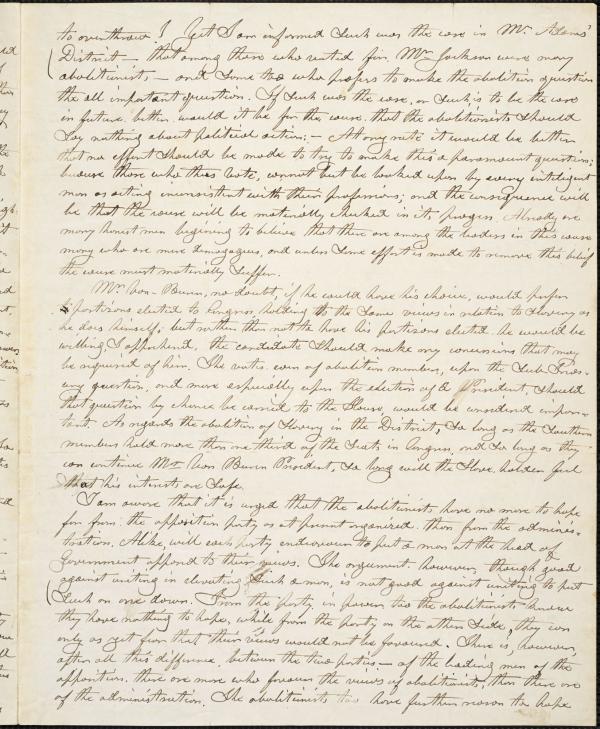 to overthrow! Yet I am informed such was the case in Mr. Adams'
District — that among those who voted for Mr. Jackson were many
abolitionists, — and some too who profess to make the abolition question
the all important question. If such was the case, or such is to be the case
in future, better would it be for the cause, that the abolitionists should
say nothing about political action; — At any rate it would be better
that no effort should be made to try to make this a paramount question;
because those who thus vote, cannot but be looked upon by every intelligent
man as acting inconsistent with their professions; and the consequence will
be that the cause will be materially checked in its progress. Already are
many honest men beginning to believe that there are among the leaders in this cause
many who are mere demagogues, and unless some effort is made to remove this belief
the cause must materially suffer.
Mr. Van Buren, no doubt, if he could have his choice, would prefer
partizans elected to Congress, holding to the same views in relation to slavery as
he does himself; but rather than not to have his partizans elected he would be
willing, I apprehend, the candidate should make any concessions that may
be required of him. The votes even of abolition members, upon the Sub Treas-
ury question, and more especially upon the election of a President, should
that question by chance be carried to the House, would be considered impor-
tant. As regards the abolition of slavery in the District, so long as the Southern
members hold more than one third of the seats in Congress, and so long as they
can continue Mr. Van Buren President, so long will the slave holders feel
that his interests are safe.
I am aware that it is urged that the abolitionists have no more to hope
for from the opposition party as at present organized than from the adminis-
tration. Alike, will each party endeavour to put a man at the head of
Government opposed to their views. The argument, however, though good
against uniting in elevating such a man, is not good against uniting to put
such an one down. From the party in power too the abolitionists know
they have nothing to hope, while from the party on the other side, they can
only as yet fear that their views would not be favoured. There is, however,
after all this difference, between the two parties — of the leading men of the
opposition, there are more who favour the views of abolitionists, than there are
of the administration. The abolitionists too have further reason to hope